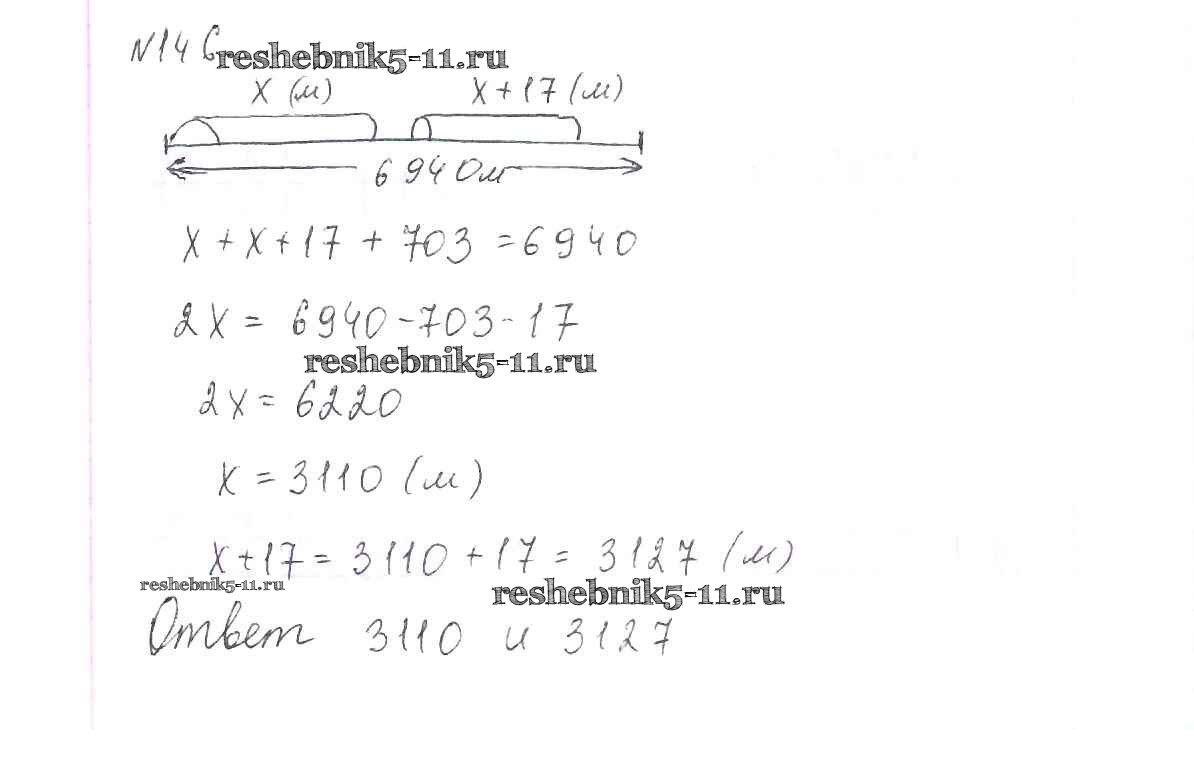 N14 reshebnik5-11.ru
x (м) x + 17 (м)
6 940м
x + x + 17 + 703 = 6940
2x = 6940 - 703 - 17
reshebnik5-11.ru
2x = 6220
x = 3110 (м)
x + 17 = 3110 + 17 = 3127 (м)
reshebnik5-11.ru reshebnik5-11.ru
Ответ 3110 и 3127